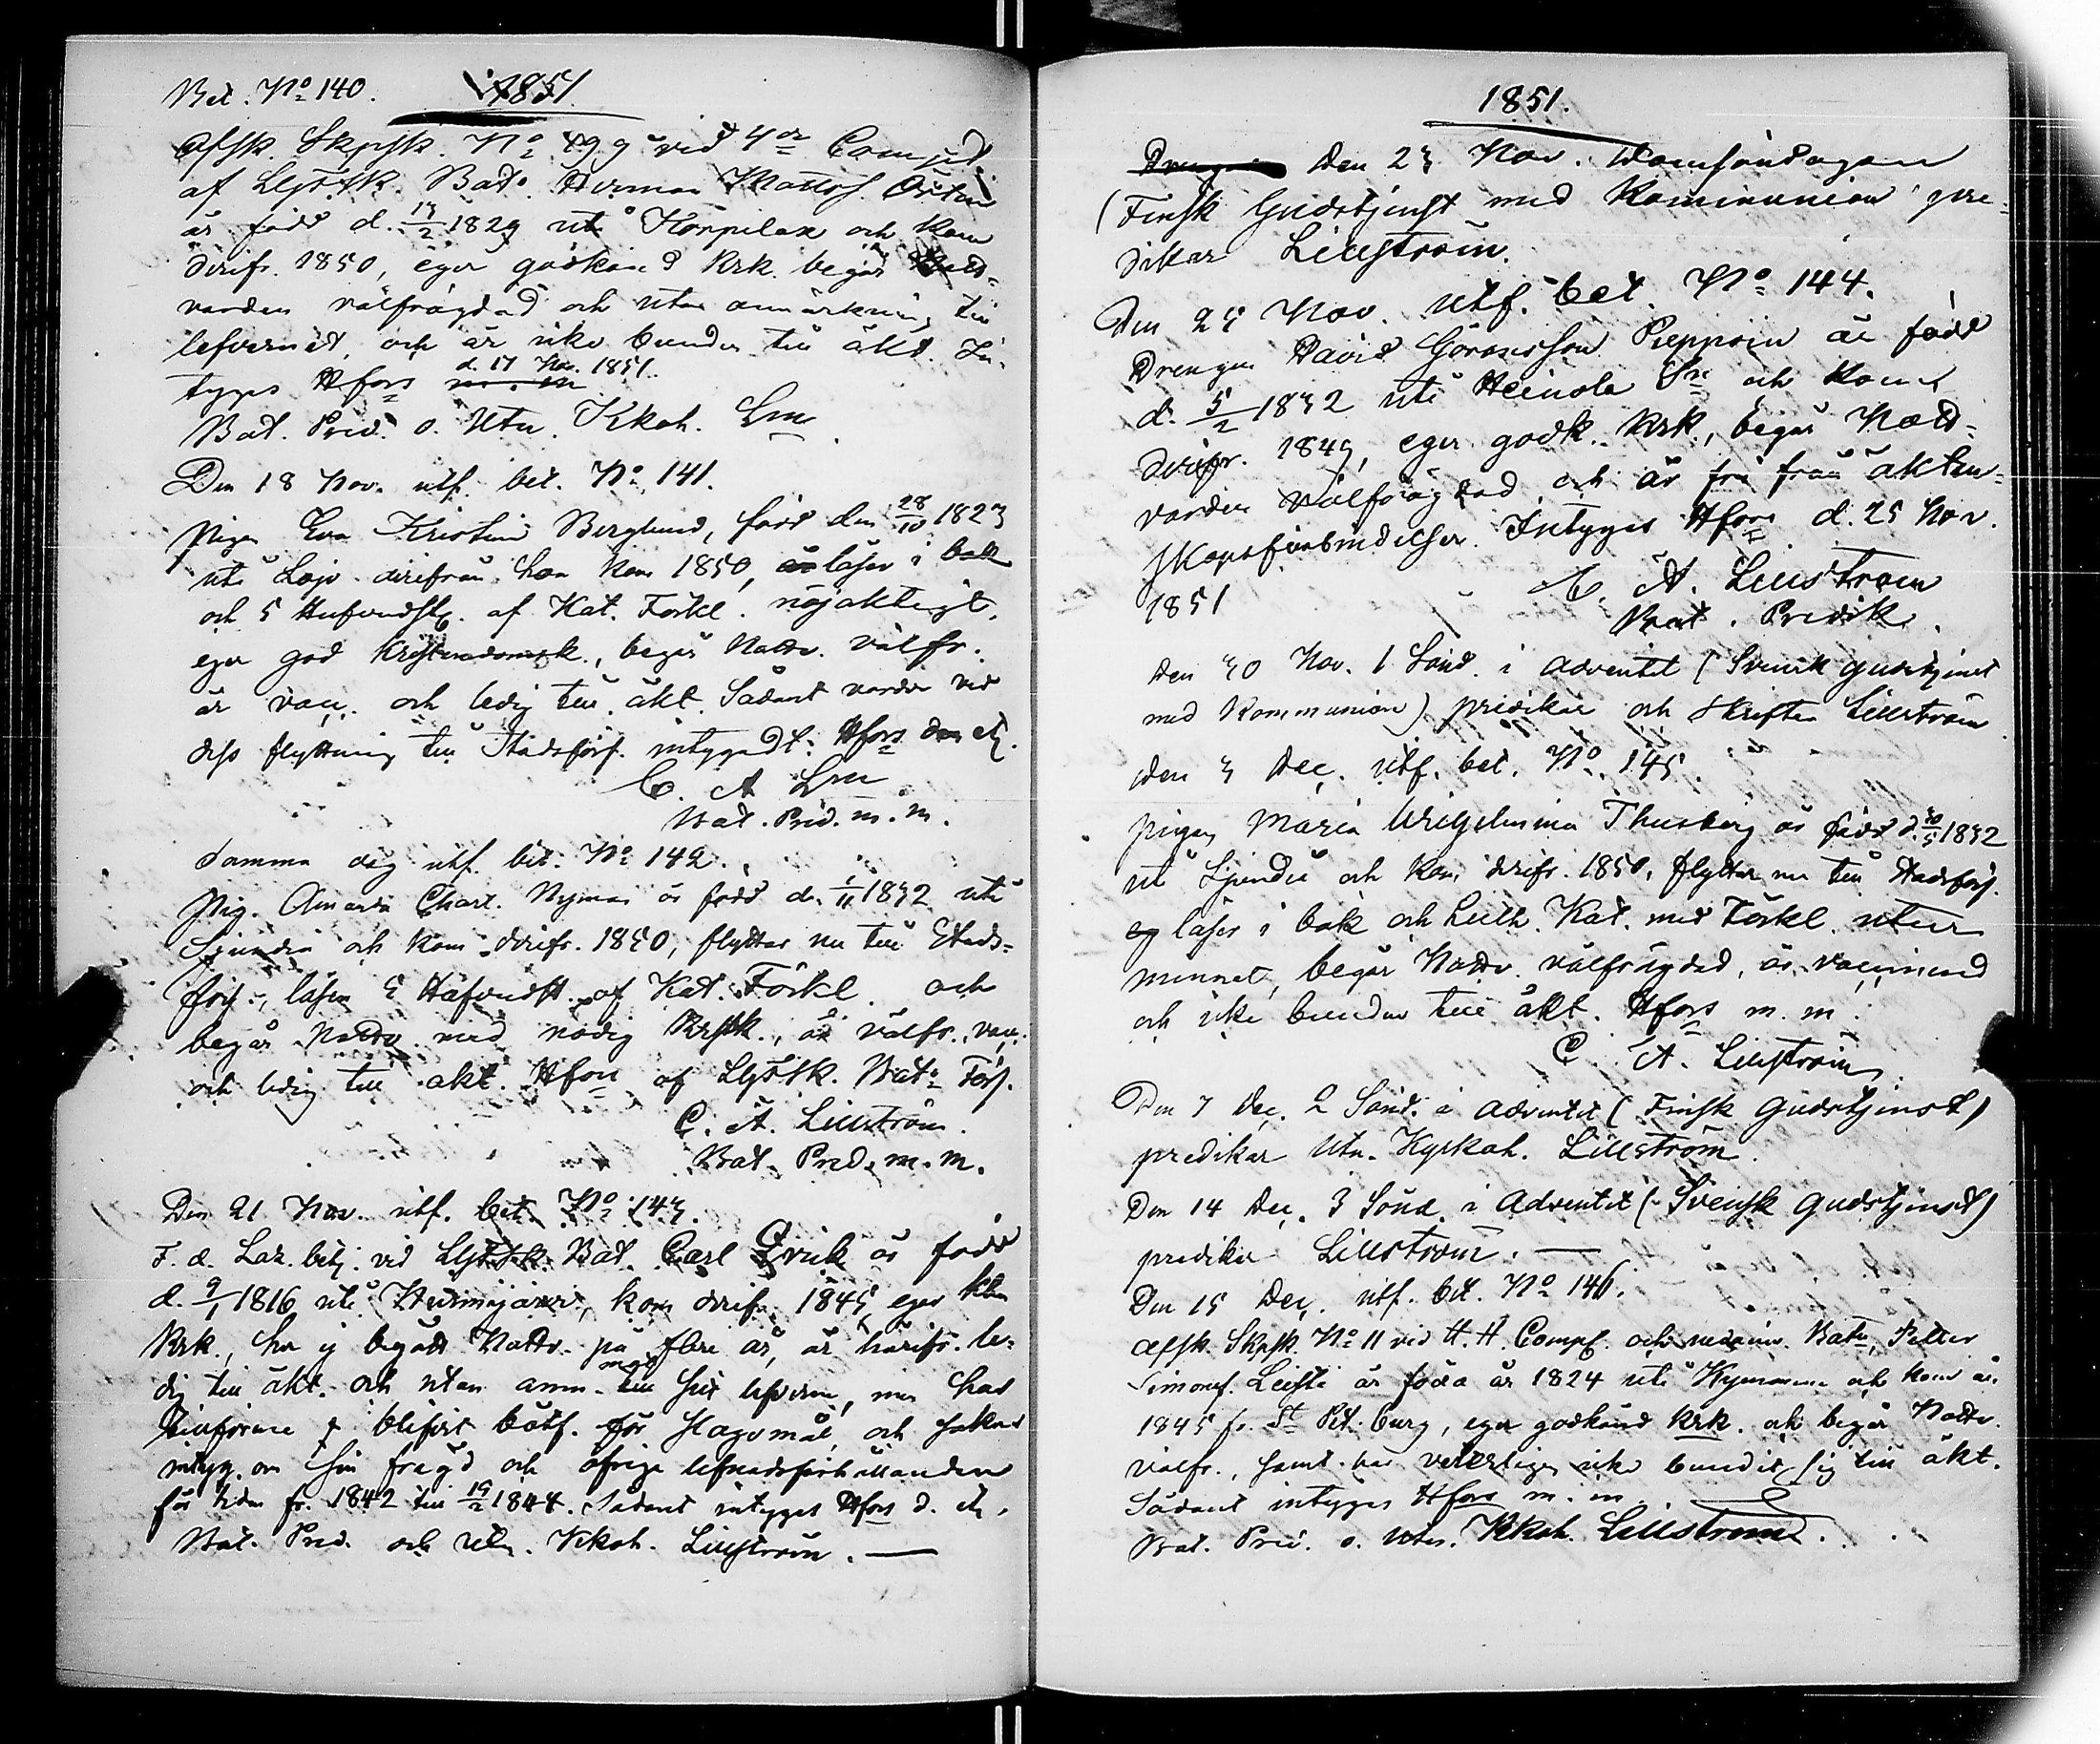 Bet. No 140. 1851
Afsk. Skpsk. No 499 vid 4de Comp.
af Lifg. Skarpsk. Bat. Herman Mattss.
är född d. 17/2 1829 uti Korpilax och kom
derifr. 1850, eger godkänd Krk. begår Natt-
varden välfrägdad och utan anmärkning till
lefvernet, och är icke bunden till äkt. In-
tygas Hfors d. 17 Nov. 1851.
Bat. Pred. o. Utn. Kkoh. Lm
Den 18 Nov. utf. bet. No 141.
Pigan Eva Kristina Berglund, född den 28/10 1823
uti Lojo derifrån hon kom 1850, läser i bok
och 5 Hufvudst. af Kat. Förkl. nöjaktigt,
eger god Kristendomsk., begår Nattv. välfr.
är vacc. och ledig till äkt. Sådant varder vid
dess flyttning till Stadsförs. intygadt: Hfors den etc.
C. A. Lm
Bat. Pred. m. m.
Samma dag utf. bet. No 142.
Pig. Amanda Charl. Nyman är född d. 1/11 1832 uti
Sjundeå och kom derifr. 1850, flyttar nu till Stads-
förs., läser 5 Hufvudst. af Kat. Förkl. och
begår Nattv. med nödig Krstk., är välfr., vacc.
och ledig till äkt. Hfors af Skarpsk. Bat. Förs.
C. A. Lillström.
Bat. Pred. m. m.
Den 21 Nov. utf. bet. No 143.
F. d. Laz. betj. vid Skarpsk. Bat. Carl Qvick är född
d. 9/1 1816 uti Hvirmajärvi, kom derifr. 1845, eger klen
Krk., har ej begått Nattv. på flere år, är härifr. le-
dig till äkt. och utan anm. till sitt lefverne, men har
härförinnan blifvit bötf. för slagsmål, och saknar
intyg om sin frägd och öfriga lefnadsförhållanden
för tiden fr. 1842 till 19/2 1844. Sådant intygas Hfors d. etc.
Bat. Pred. och Utn. Kkoh. Lillström. —
1851.
Den 23 Nov. Domsöndagen
(Finsk Gudstjenst med Kommunion) pre-
dikar Lillström.
Den 25 Nov. utf. bet. No 144.
Drengen David Göransson Pieppoin är född
d. 5/2 1832 uti Heinola Sn och kom
derifr. 1849, eger godk. Krk., begår Natt-
varden välfrägdad och är fri från äkten-
skapsförbindelser. Intygas Hfors d. 25 Nov.
1851 C. A. Lillström
Bat. Predik.
Den 30 Nov. 1 Sönd. i Adventet (Svensk gudstjenst
med Kommunion) predikar och skriftar Lillström
Den 3 Dec. utf. bet. No 145.
Pigan Maria Wilhelmina Thusberg är född d. 30/5 1832
uti Sjundeå och kom derifr. 1850, flyttar nu till Stadsförs.
läser i bok och Luth. Kat. med Förkl. utur
minnet, begår Nattv. välfrägdad, är vaccinerad
och icke bunden till äkt. Hfors m. m.
C. A. Lillström
Den 7 Dec. 2 Sönd. i Adventet (Finsk Gudstjenst)
predikar Utn. Kyrkoh. Lillström.
Den 14 Dec. 3 Sönd. i Adventet (Svensk gudstjenst)
predikar Lillström. —
Den 15 Dec. utf. bet. No 146.
Afsk. Skpsk. No 11 vid H. H. Comp. och Bat:n, Petter
Simonss. Leisti är född år 1824 uti Kymmene och kom år
1845 fr. St. Pet. burg, eger godkänd Krk. och begår Nattv.
välfr., samt har veterligen icke bundit sig till äkt.
Sådant intygas Hfors m. m.
Bat. Pred. o. Utn. Kkoh. Lillström.